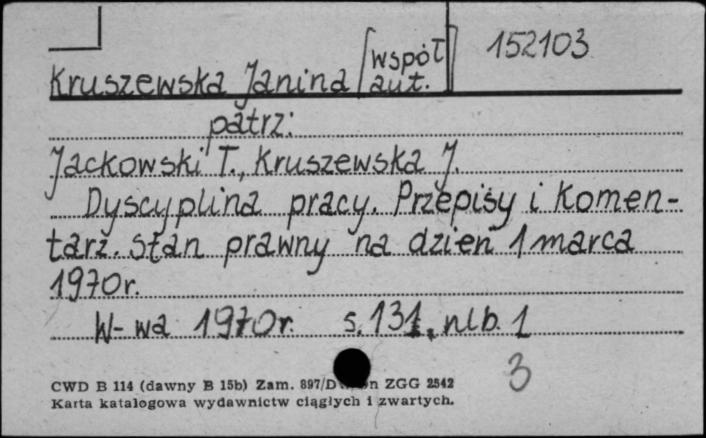 Kruszewska Janina [współ aut.] 152103
patrz:
Jackowski T., Kruszewska J.
Dyscyplina pracy. Przepisy i Komen-
tarz. Stan prawny na dzień 1 marca
1970r.
W-wa 1970r. s. 131, nlb. 1
3
CWD B 114 (dawny B 15b) Zam. 897/D ZGG 2542
Karta katalogowa wydawnictw ciągłych i zwartych.